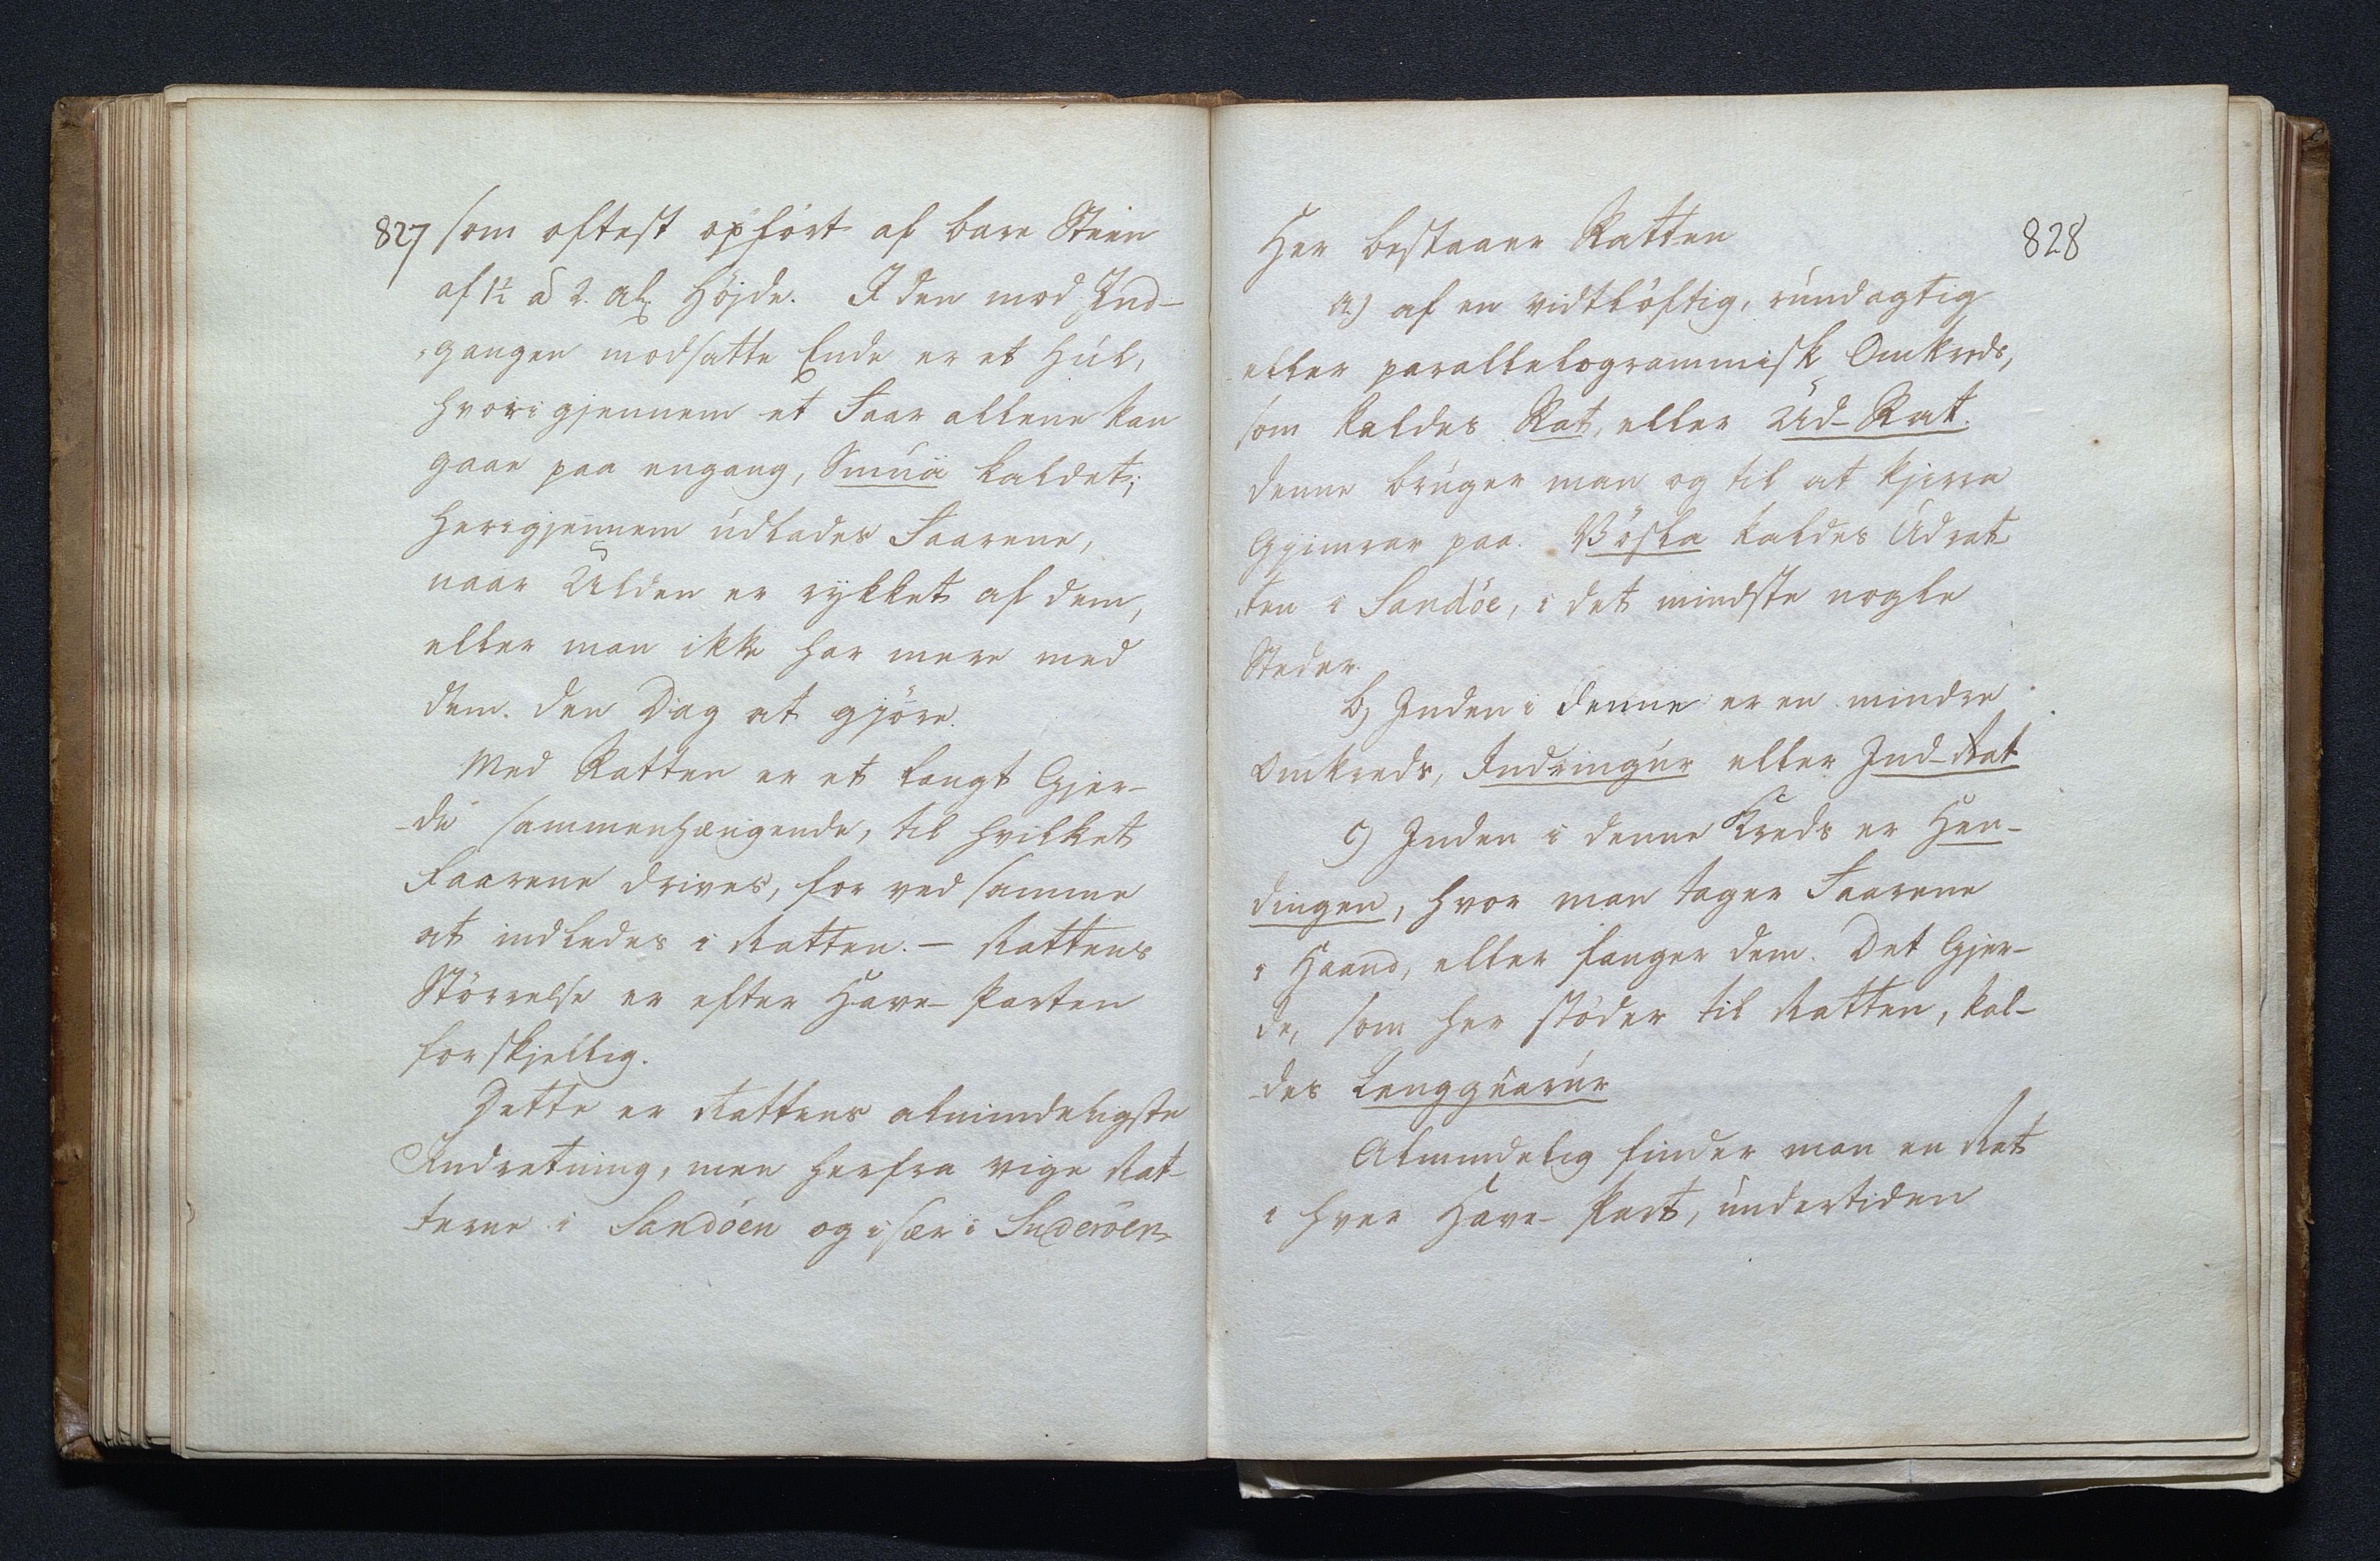 827
som oftest opført af bare Steen
af 1½ à 2 al. Højde. I den mod Ind-
gangen modsatte Ende er et Hul,
hvorigjennem et Faar allene kan
gaae paa engang, Smúa kaldet;
herigjennem udlades Faarene,
naar Ulden er rykket af dem,
eller man ikke har mere med
dem den Dag at gjøre.
Med Ratten er et langt Gjer-
-de sammenhængende, til hvilket
Faarene drives, for ved samme
at indledes i Ratten. — Rattens
Størrelse er efter Have-Parten
forskjellig.
Dette er Rattens almindeligste
Indretning, men herfra vige Rat-
terne i Sandöen og især i Suderöen
828
Her bestaaer Ratten
a.) af en vidtløftig, rundagtig
eller parallelogrammisk Omkreds,
som kaldes Rat, eller Ud-Rat.
denne bruger man og til at kjera
Gjimrar paa. Bösla kaldes Udrat-
ten i Sandöe, i det mindste nogle
Steder.
b) Inden i denne er en mindre
Omkreds, Indringur eller Ind-Rat
c) Inden i denne Kreds er Hen-
dingen, hvor man tager Faarene
i Haand, eller fanger dem. Det Gjer-
de, som her støder til Ratten, kal-
-des Lenggiarur
Almindelig finder man en Rat
i hver Have-Part, undertiden